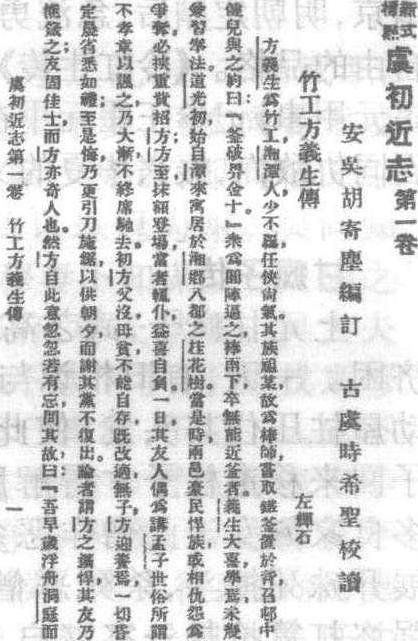 新式標點 虞初近志 第一卷
安吳胡寄塵編訂 古虞時希聖校讀
竹工方義生傳
左輝石
方義生爲竹工，湘潭人。少不羈，任俠尙氣。其族顧某，故爲棒師，嘗取鐵釜置於背，召邨中
健兒與之約曰：『釜破畀金十。』衆爲圓陣逼之，棒雨下，卒無能近釜者。義生大喜，學焉。未幾，
盡習學法。道光初，始自潭來寓居於湘鄉八都之桂花樹。當是時，兩邑豪民悍族，或相仇怨爲
爭奪，必挾重貲招方。方至，抹額登場，當者輒仆，益喜自負。一日，其友人偶爲講孟子世俗所謂
不孝章以諷之，乃大慚，不終席馳去。初，方父沒，母貧不能自存，旣改適，無子，方迎養焉，一切昏
定晨省悉如禮。至是悔，乃更引刀施鋸，以供朝夕，而謝其黨不復出。論者謂方之獷悍，其友乃
能箴之，友固佳士，而方亦奇人也。然方自此意忽忽若有忘。問其故，曰：『吾早歲浮舟洞庭，面
虞初近志第一卷 竹工方義生傳 一